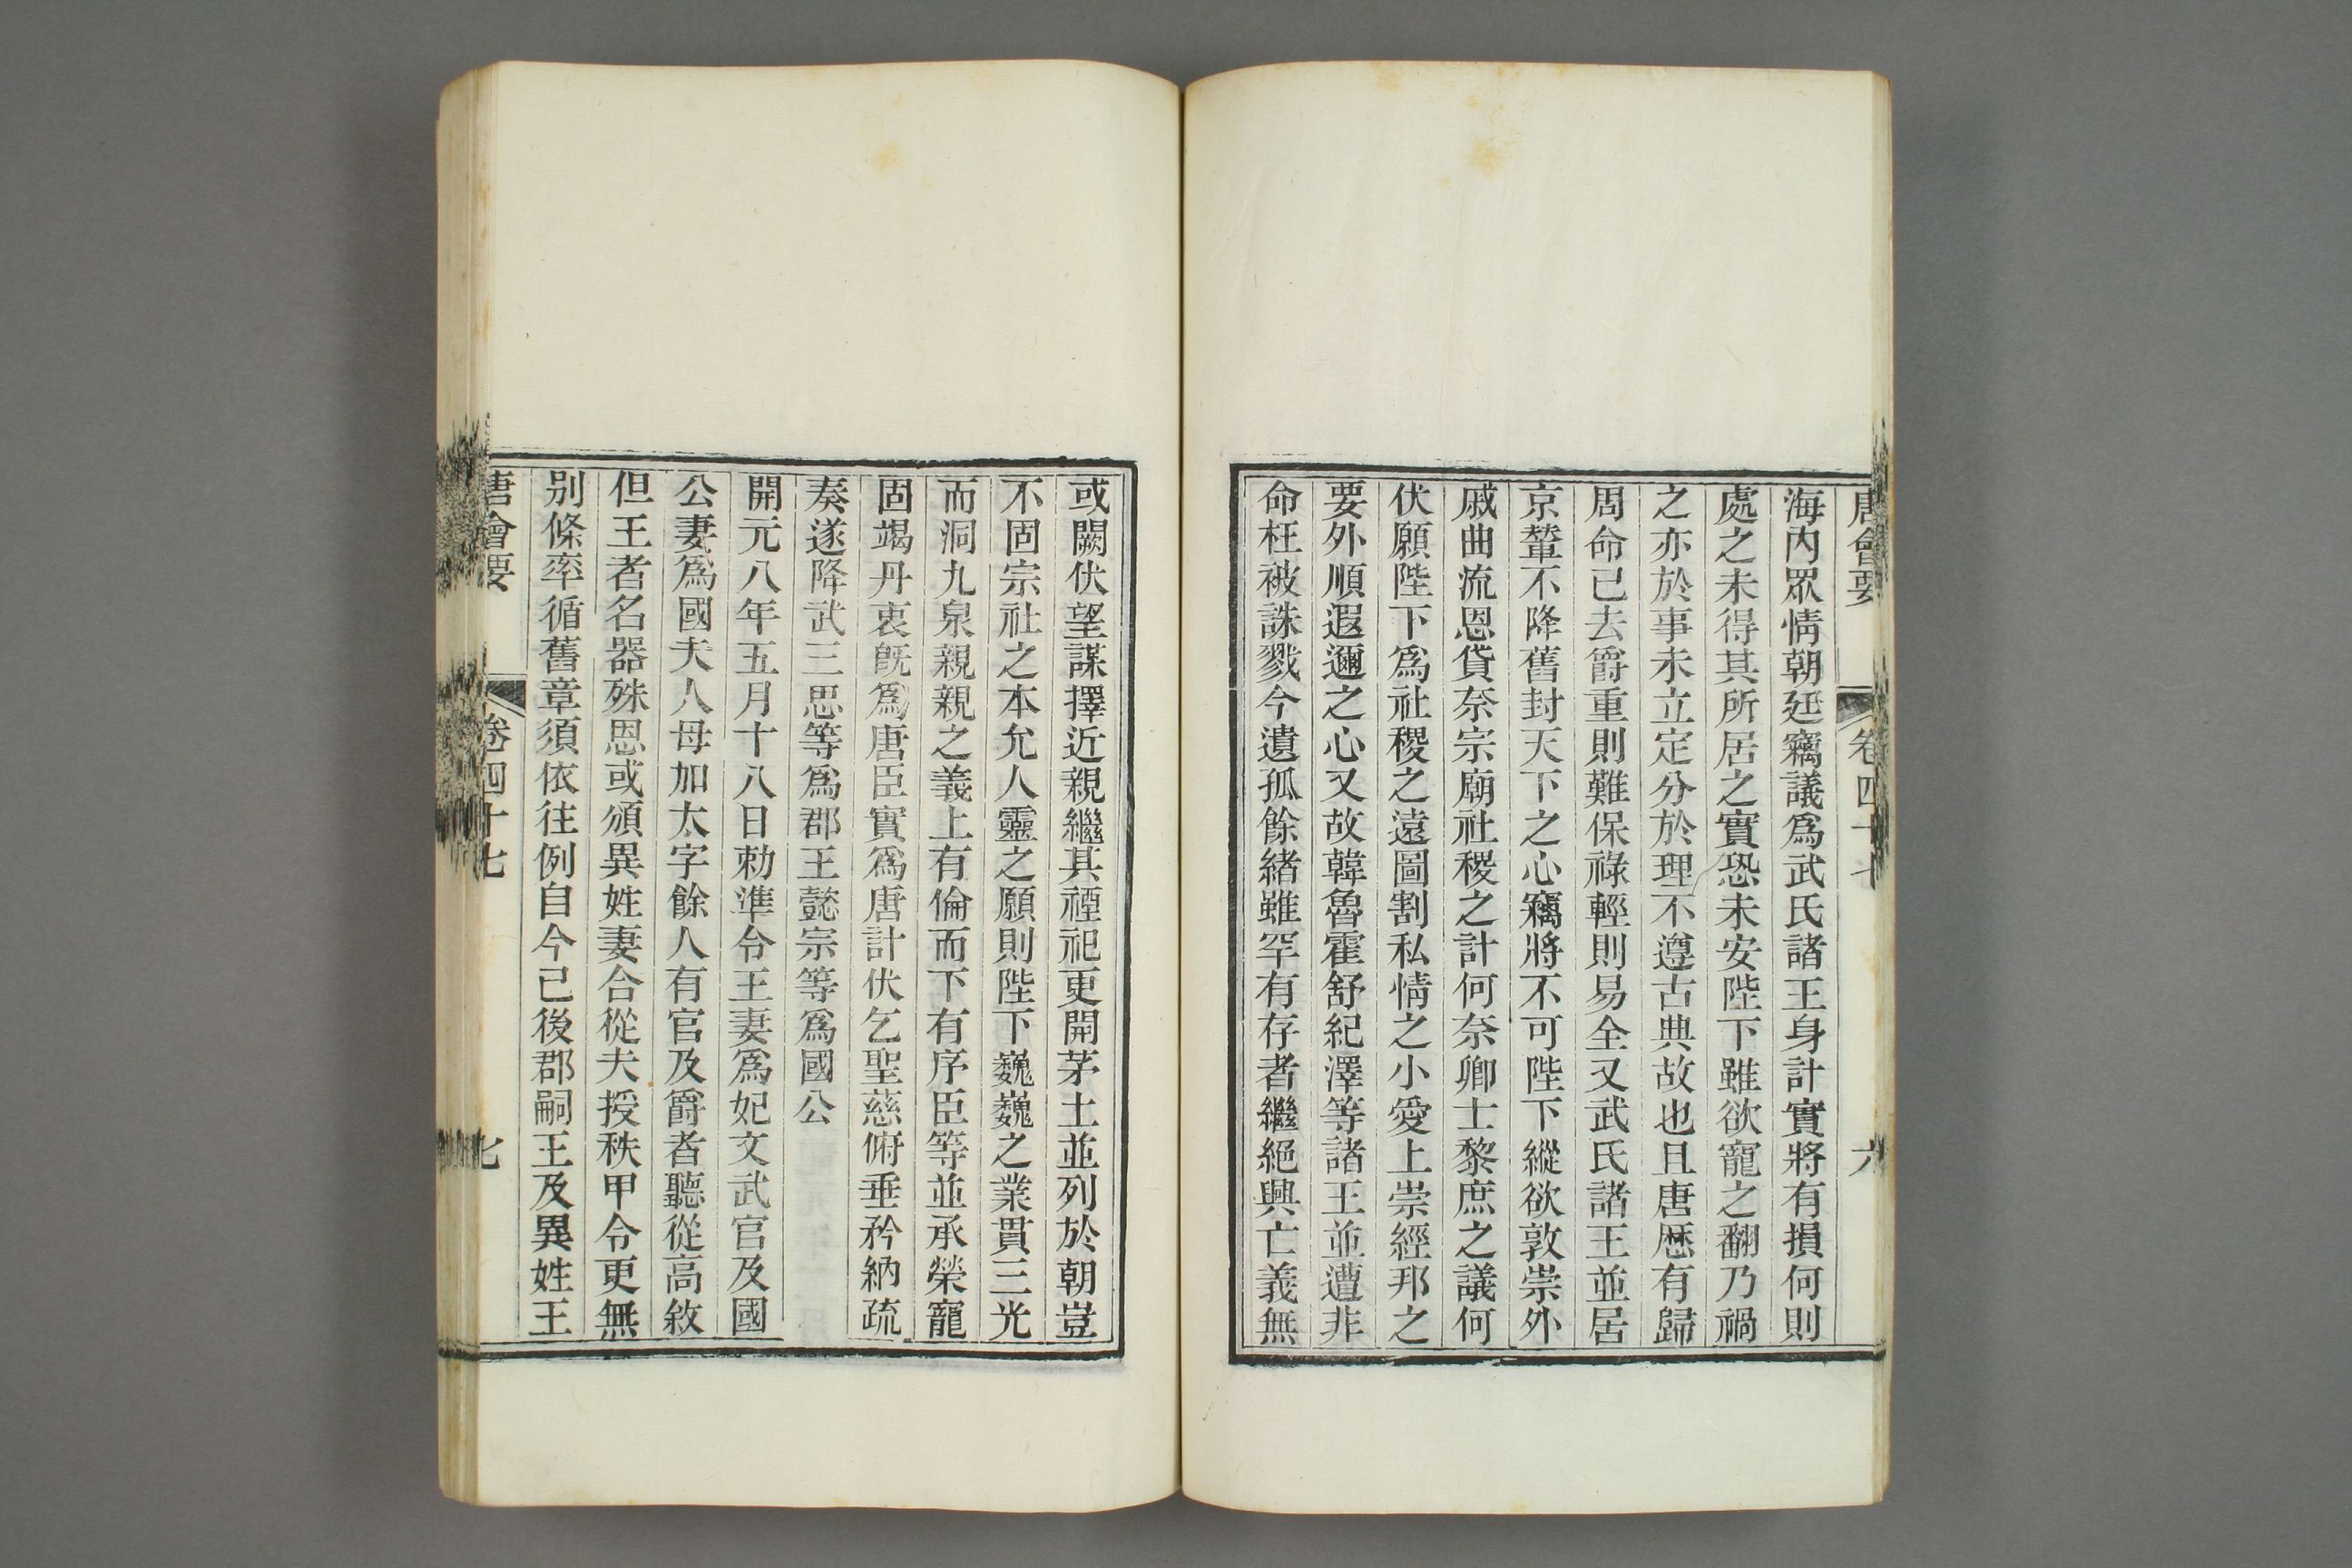 唐會要 卷四十七 六
海內眾情朝廷竊議爲武氏諸王身計實將有損何則
處之未得其所居之實恐未安陛下雖欲寵之翻乃禍
之亦於事未立定分於理不遵古典故也且唐歷有歸
周命已去爵重則難保祿輕則易全又武氏諸王並居
京輦不降舊封天下之心竊將不可陛下縱欲敦崇外
戚曲流恩貸奈宗廟社稷之計何奈卿士黎庶之議何
伏願陛下爲社稷之遠圖割私情之小愛上崇經邦之
要外順遐邇之心又故韓魯霍舒紀澤等諸王並遭非
命枉被誅戮今遺孤餘緒雖罕有存者繼絕興亡義無
或闕伏望謀擇近親繼其禋祀更開茅土並列於朝豈
不固宗社之本允人靈之願則陛下巍巍之業貫三光
而洞九泉親親之義上有倫而下有序臣等並承榮寵
固竭丹衷既爲唐臣實爲唐計伏乞聖慈俯垂矜納疏
奏遂降武三思等爲郡王懿宗等爲國公
開元八年五月十八日勅準令王妻爲妃文武官及國
公妻爲國夫人母加太字餘人有官及爵者聽從高敘
但王者名器殊恩或頒異姓妻合從夫授秩甲令更無
別條率循舊章須依往例自今已後郡嗣王及異姓王
唐會要 卷四十七 七